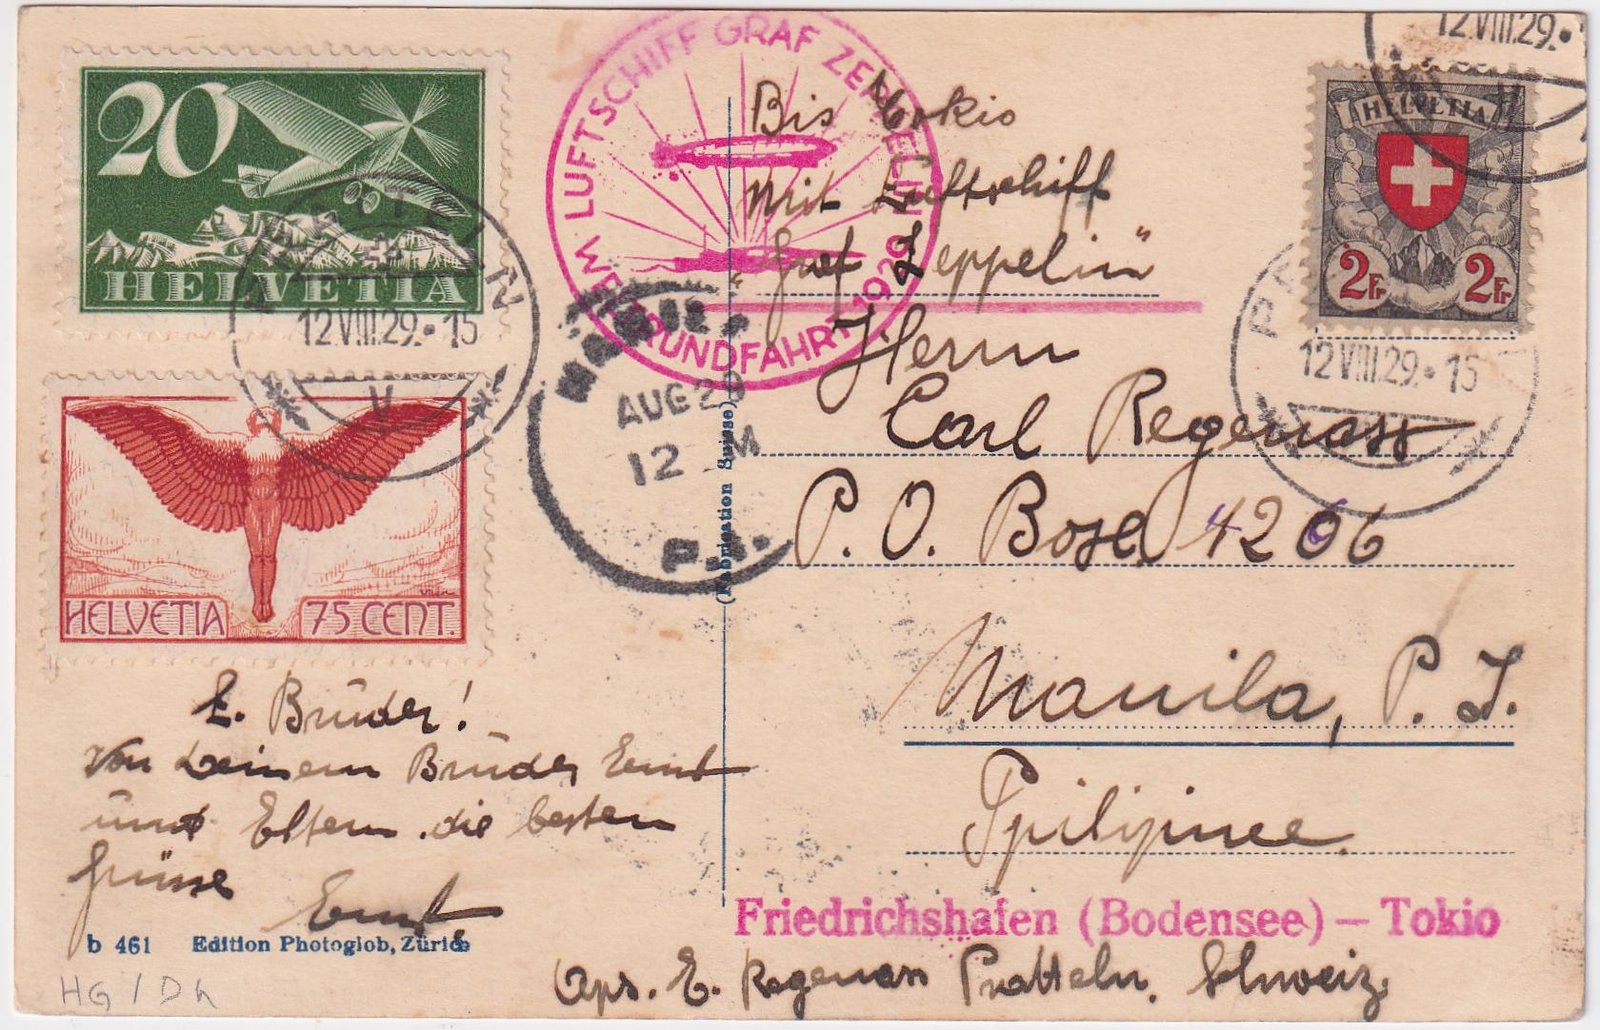 20
HELVETIA
LUFTSCHIFF GRAF ZEPPELIN
WELTRUNDFAHRT 1929
12.VIII.29.
HELVETIA
2Fr 2Fr
PRATTELN
12.VIII.29.-15
V
12.VIII.29.-15
HELVETIA 75 CENT.
AUG 29
12 M
P.I.
(Fabrication Suisse)
Bis Tokio
mit Luftschiff
„Graf Zeppelin“
Herrn
Carl Regenass
P. O. Box 4206
Manila, P. I.
Ppilipinee
L. Brüder!
Von Deinem Brüder Ernst
und Eltern die besten
Grüsse
Ernst.
b 461 Edition Photoglob, Zürich
Friedrichshafen (Bodensee) – Tokio
Aps. E. Regenass Pratteln. Schweiz.
HG / Dh